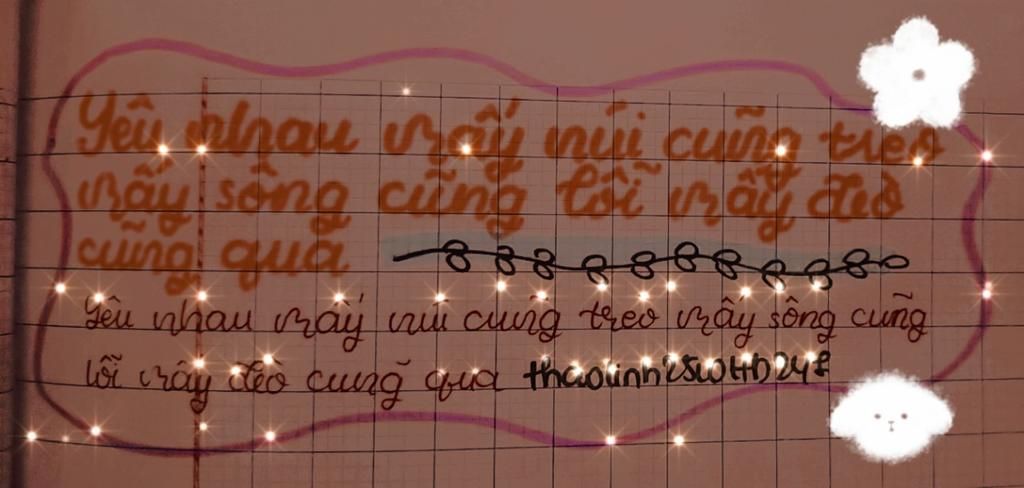 Yêu nhau mấy núi cũng treo
mấy sông cũng lội mấy đèo
cũng qua
Yêu nhau mấy núi cũng treo mấy sông cũng
lội mấy đèo cũng qua